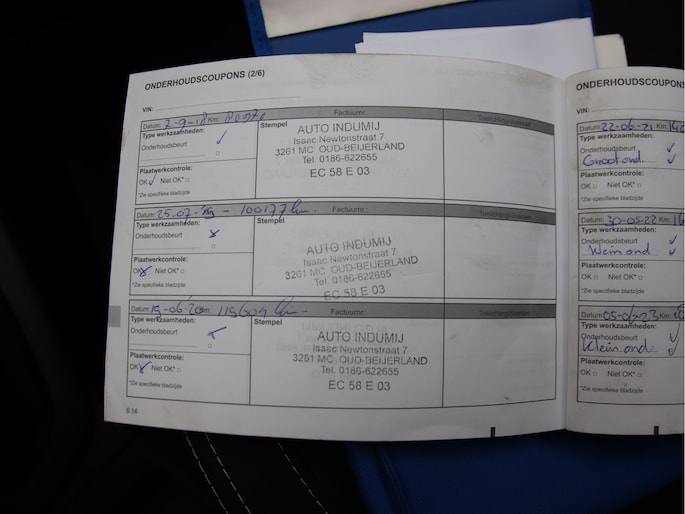 ONDERHOUDSCOUPONS (2/6)
VIN:
Datum: 2-9-18 Km:
Factuurnr.:
Type werkzaamheden:
Onderhoudsbeurt
Plaatwerkcontrole:
OK Niet OK*
*Zie specifieke bladzijde
Stempel
AUTO INDUMIJ
Isaac Newtonstraat 7
3261 MC OUD-BEIJERLAND
Tel. 0186-622655
EC 58 E 03
Datum: 25.07- - 100177 km.
Factuurnr.:
Type werkzaamheden:
Onderhoudsbeurt
Plaatwerkcontrole:
OK Niet OK*
*Zie specifieke bladzijde
Stempel
AUTO INDUMIJ
Isaac Newtonstraat 7
3261 MC OUD-BEIJERLAND
Tel. 0186-622655
EC 58 E 03
Datum: 15-06-20 115604 km
Factuurnr.:
Type werkzaamheden:
Onderhoudsbeurt
Plaatwerkcontrole:
OK Niet OK*
*Zie specifieke bladzijde
Stempel
AUTO INDUMIJ
Isaac Newtonstraat 7
3261 MC OUD-BEIJERLAND
Tel. 0186-622655
EC 58 E 03
6.14
ONDERHOUDSCOUPONS
VIN:
Datum: 22-06-21 Km:
Type werkzaamheden:
Onderhoudsbeurt
Groot ond.
Plaatwerkcontrole:
OK Niet OK*
*Zie specifieke bladzijde
Datum: 30-05-22 Km:
Type werkzaamheden:
Onderhoudsbeurt
Klein ond.
Plaatwerkcontrole:
OK Niet OK*
*Zie specifieke bladzijde
Datum: 05-01-23 Km:
Type werkzaamheden:
Onderhoudsbeurt
Klein ond.
Plaatwerkcontrole:
OK Niet OK*
*Zie specifieke bladzijde